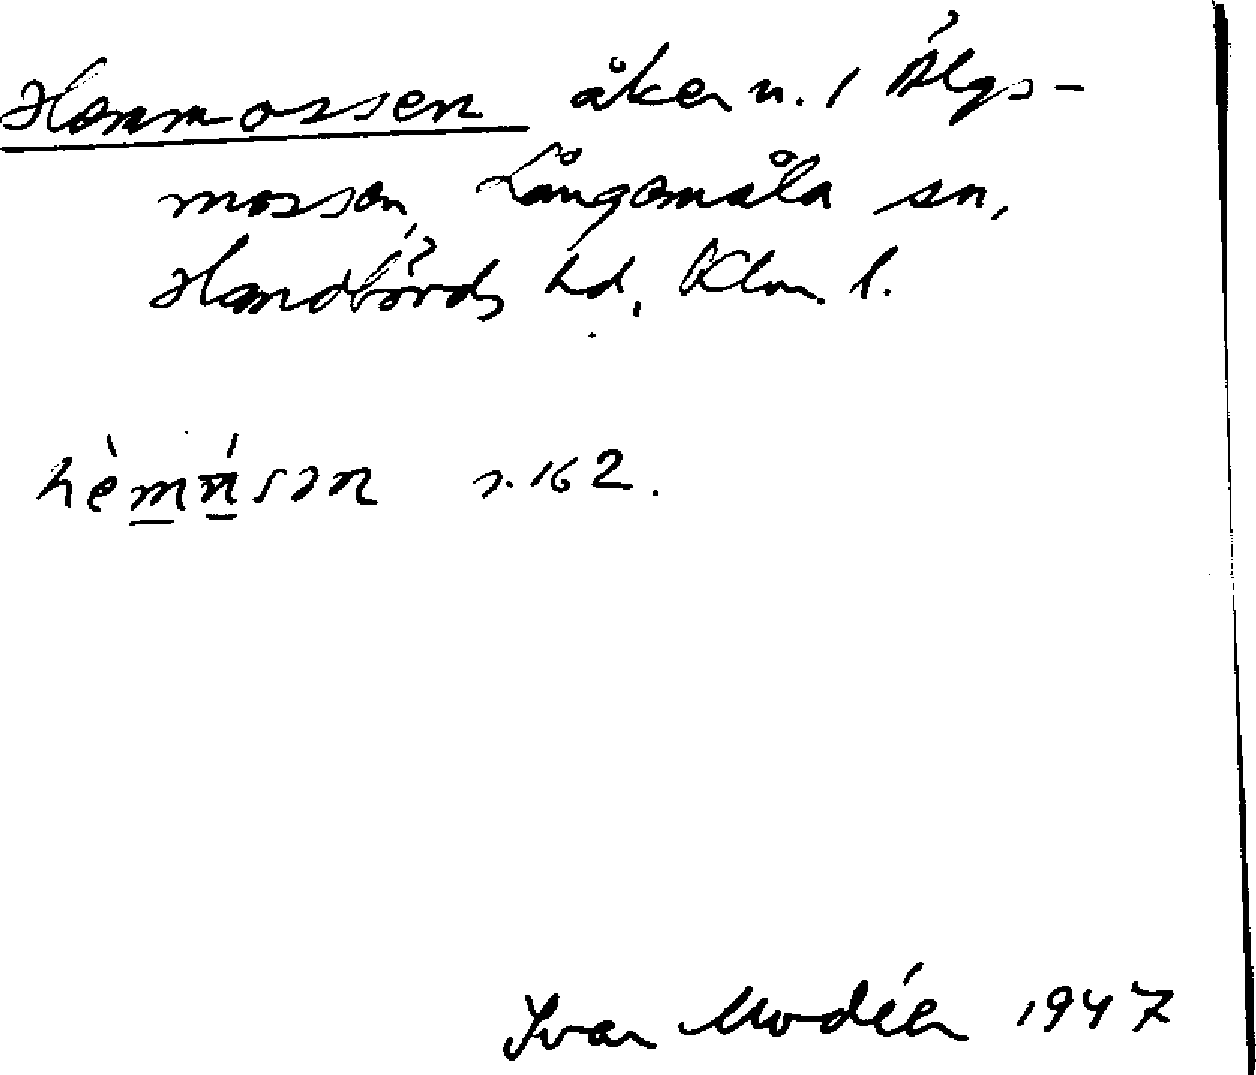 Hemmossen åker n. i Älgs-
mossen, Långemåla sn,
Handbörds hd, Klm. l.
hèmńsən s. 162.
Ivar Modéer 1947